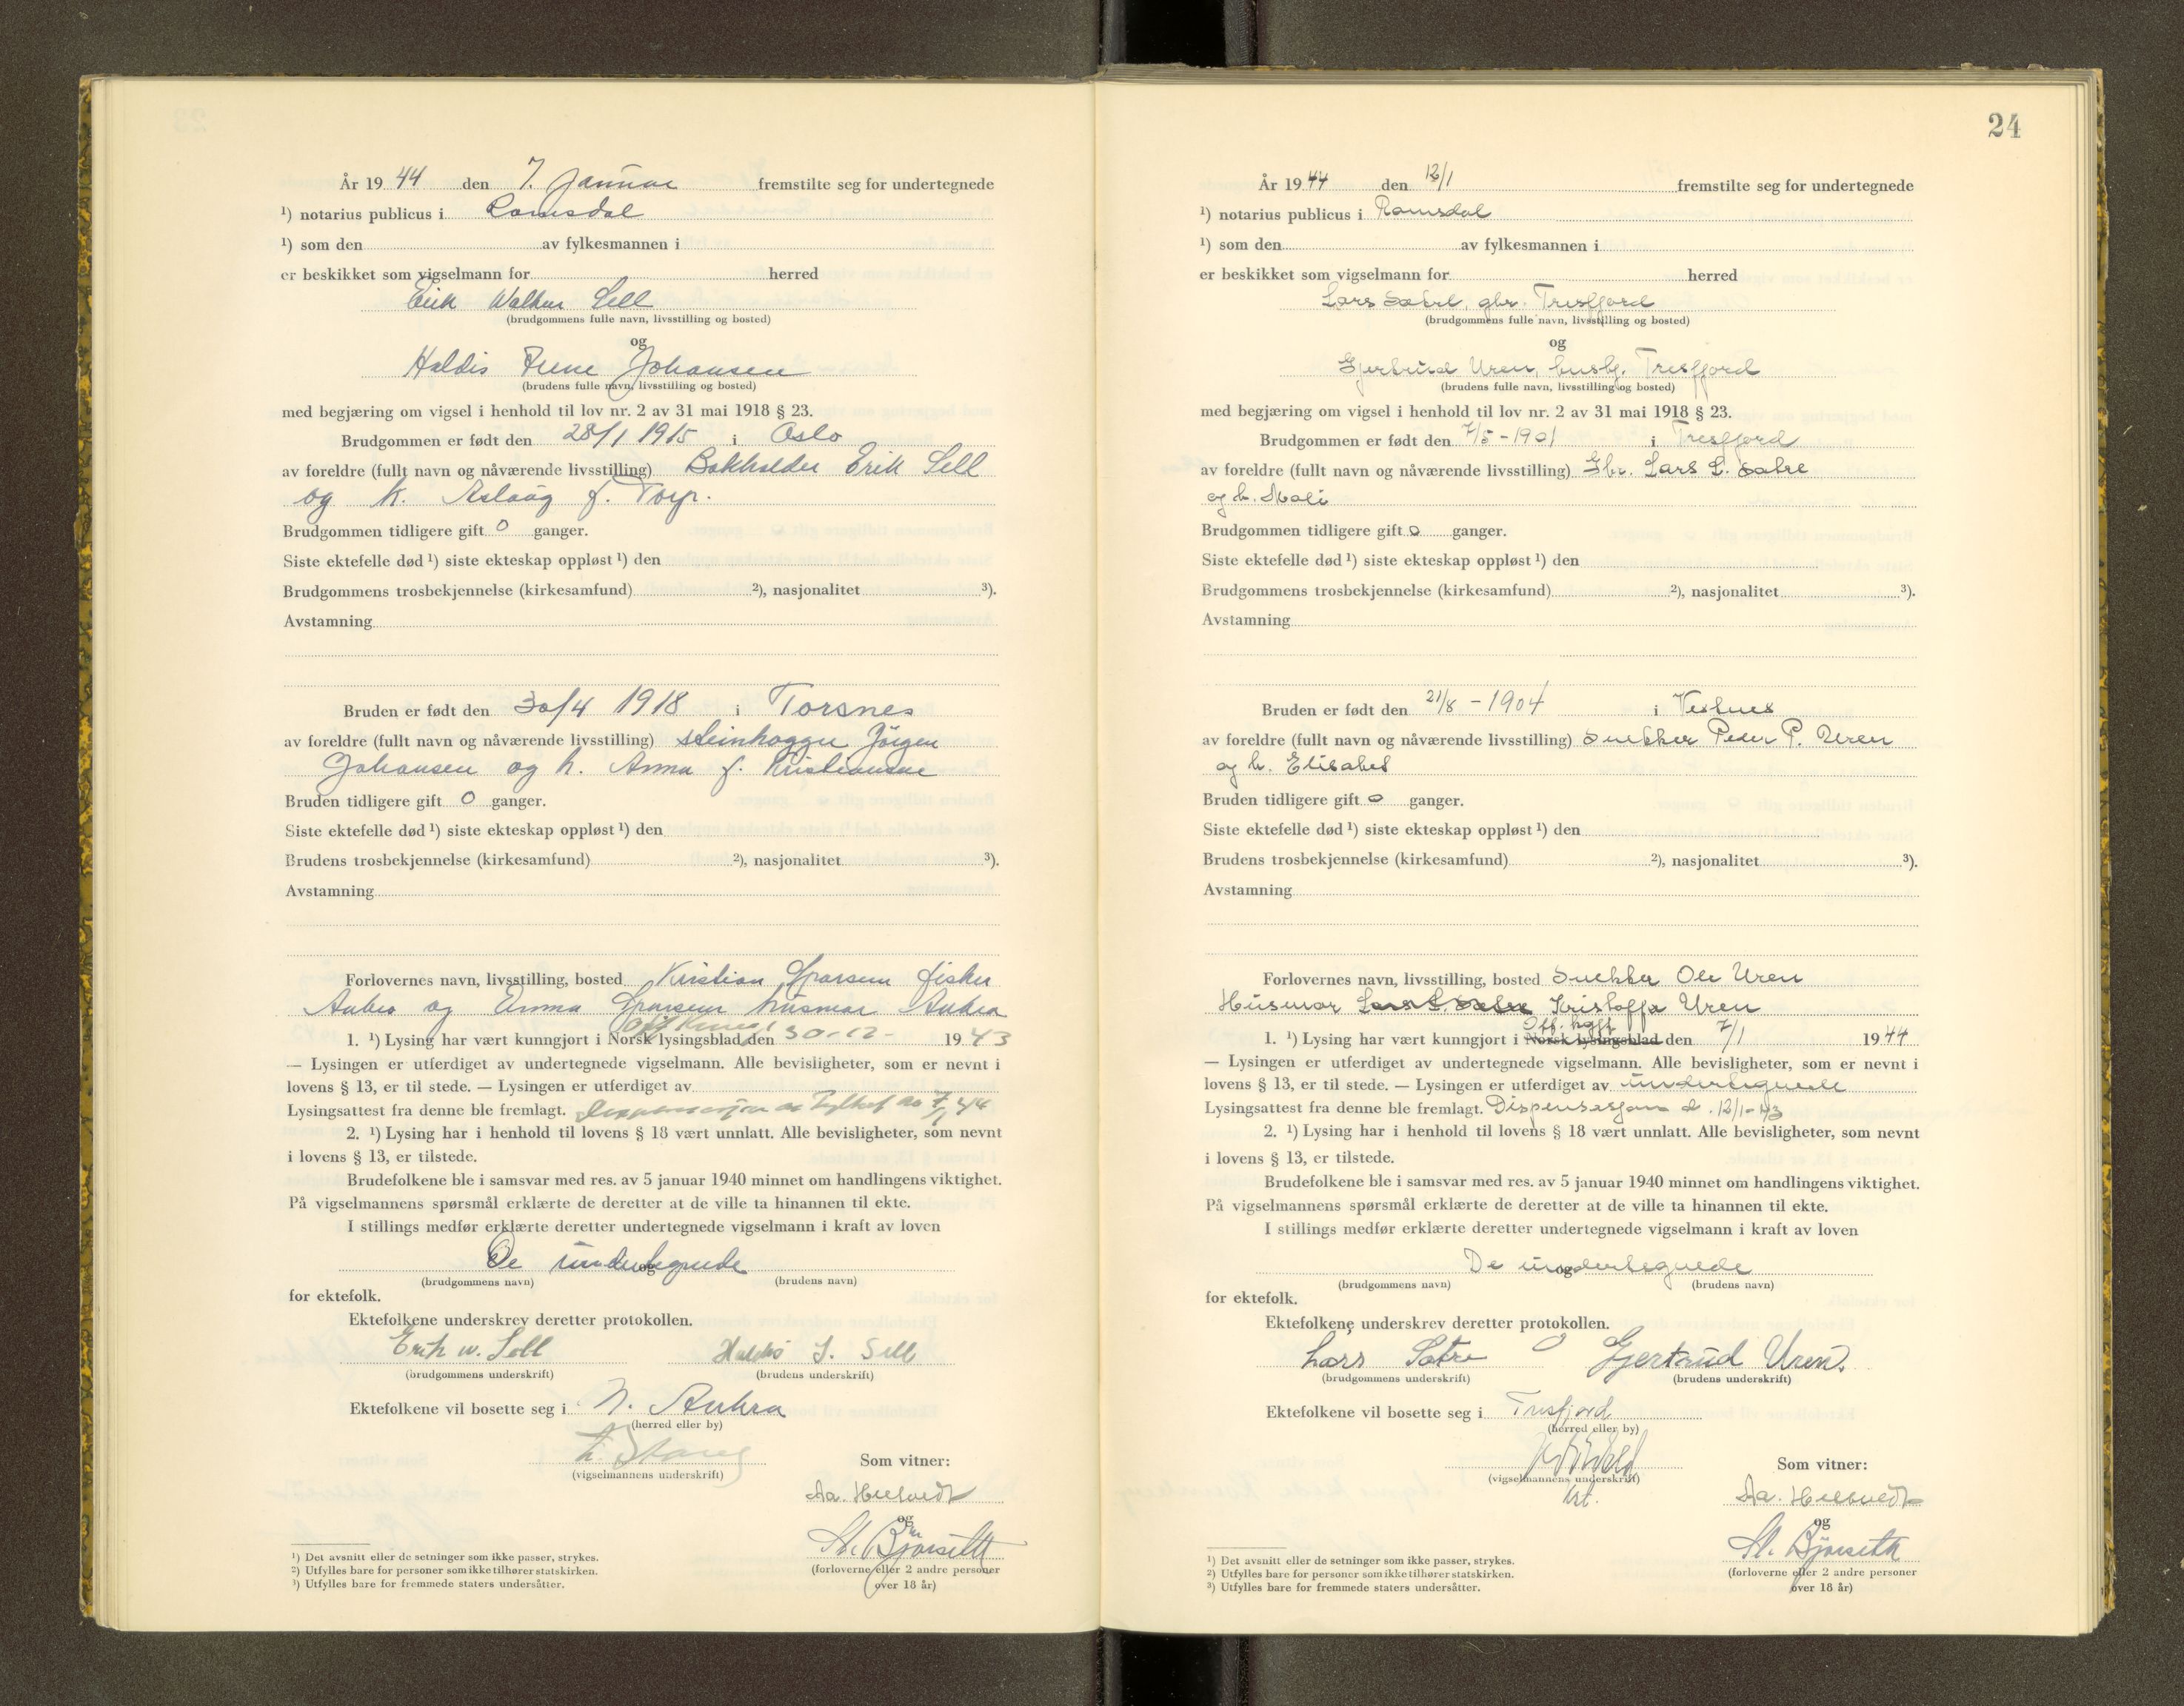 År 19 44 den 7. Januar fremstilte seg for undertegnede
¹) notarius publicus i Romsdal
¹) som den av fylkesmannen i
er beskikket som vigselmann for herred
Erik Walther Sell
(brudgommens fulle navn, livsstilling og bosted)
og
Haldis Irene Johansen
(brudens fulle navn, livsstilling og bosted)
med begjæring om vigsel i henhold til lov nr. 2 av 31 mai 1918 § 23.
Brudgommen er født den 28/1 1915 i Oslo
av foreldre (fullt navn og nåværende livsstilling) Bokholder Erik Sell
og h. Aslaug f. Torp.
Brudgommen tidligere gift 0 ganger.
Siste ektefelle død ¹) siste ekteskap oppløst ¹) den
Brudgommens trosbekjennelse (kirkesamfund) ²), nasjonalitet ³).
Avstamning
Bruden er født den 30/4 1918 i Torsnes
av foreldre (fullt navn og nåværende livsstilling) steinhogger Jörgen
Johansen og h. Anna f. Kristiansen
Bruden tidligere gift 0 ganger.
Siste ektefelle død ¹) siste ekteskap oppløst ¹) den
Brudens trosbekjennelse (kirkesamfund) ²), nasjonalitet ³).
Avstamning
Forlovernes navn, livsstilling, bosted Kristian fisker
Aukra og husmor Aukra
1. ¹) Lysing har vært kunngjort i Norsk lysingsblad den 30-12- 1943
— Lysingen er utferdiget av undertegnede vigselmann. Alle bevisligheter, som er nevnt i
lovens § 13, er til stede. — Lysingen er utferdiget av
Lysingsattest fra denne ble fremlagt. Dispensasjon av
2. ¹) Lysing har i henhold til lovens § 18 vært unnlatt. Alle bevisligheter, som nevnt
i lovens § 13, er tilstede.
Brudefolkene ble i samsvar med res. av 5 januar 1940 minnet om handlingens viktighet.
På vigselmannens spørsmål erklærte de deretter at de ville ta hinannen til ekte.
I stillings medfør erklærte deretter undertegnede vigselmann i kraft av loven
De undertegnede
og
(brudgommens navn) (brudens navn)
for ektefolk.
Ektefolkene underskrev deretter protokollen.
Erik W. Sell Haldis I. Sell
(brudgommens underskrift) (brudens underskrift)
Ektefolkene vil bosette seg i N. Aukra
(herred eller by)
(vigselmannens underskrift)
Som vitner:
Aa. Hellvedt
og
St. Bjørseth
(forloverne eller 2 andre personer
over 18 år)
¹) Det avsnitt eller de setninger som ikke passer, strykes.
²) Utfylles bare for personer som ikke tilhører statskirken.
³) Utfylles bare for fremmede staters undersåtter.
24
År 19 44 den 12/1 fremstilte seg for undertegnede
¹) notarius publicus i Romsdal
¹) som den av fylkesmannen i
er beskikket som vigselmann for herred
Lars Sætre, gbr. Tresfjord
(brudgommens fulle navn, livsstilling og bosted)
og
Gjertrud Uren, husbg. Tresfjord
(brudens fulle navn, livsstilling og bosted)
med begjæring om vigsel i henhold til lov nr. 2 av 31 mai 1918 § 23.
Brudgommen er født den 7/5 - 1901 i Tresfjord
av foreldre (fullt navn og nåværende livsstilling) Gbr. Lars L. Sætre
og h. Mali
Brudgommen tidligere gift 0 ganger.
Siste ektefelle død ¹) siste ekteskap oppløst ¹) den
Brudgommens trosbekjennelse (kirkesamfund) ²), nasjonalitet ³).
Avstamning
Bruden er født den 21/8 - 1904 i Vestnes
av foreldre (fullt navn og nåværende livsstilling) Snekker Peder P. Uren
og h. Elisabet
Bruden tidligere gift 0 ganger.
Siste ektefelle død ¹) siste ekteskap oppløst ¹) den
Brudens trosbekjennelse (kirkesamfund) ²), nasjonalitet ³).
Avstamning
Forlovernes navn, livsstilling, bosted Snekker Ole Uren
Husmor Lars L. Sætre Kristoffa Uren
Off. kgj.
1. ¹) Lysing har vært kunngjort i Norsk lysingsblad den 7/1 1944
— Lysingen er utferdiget av undertegnede vigselmann. Alle bevisligheter, som er nevnt i
lovens § 13, er til stede. — Lysingen er utferdiget av undertegnede
Lysingsattest fra denne ble fremlagt. Dispensasjon d. 12/1-43
2. ¹) Lysing har i henhold til lovens § 18 vært unnlatt. Alle bevisligheter, som nevnt
i lovens § 13, er tilstede.
Brudefolkene ble i samsvar med res. av 5 januar 1940 minnet om handlingens viktighet.
På vigselmannens spørsmål erklærte de deretter at de ville ta hinannen til ekte.
I stillings medfør erklærte deretter undertegnede vigselmann i kraft av loven
De undertegnede
og
(brudgommens navn) (brudens navn)
for ektefolk.
Ektefolkene underskrev deretter protokollen.
Lars Sætre Gjertrud Uren.
(brudgommens underskrift) (brudens underskrift)
Ektefolkene vil bosette seg i Tresfjord
(herred eller by)
(vigselmannens underskrift)
Som vitner:
Aa. Hellvedt
og
St. Bjørseth
(forloverne eller 2 andre personer
over 18 år)
¹) Det avsnitt eller de setninger som ikke passer, strykes.
²) Utfylles bare for personer som ikke tilhører statskirken.
³) Utfylles bare for fremmede staters undersåtter.